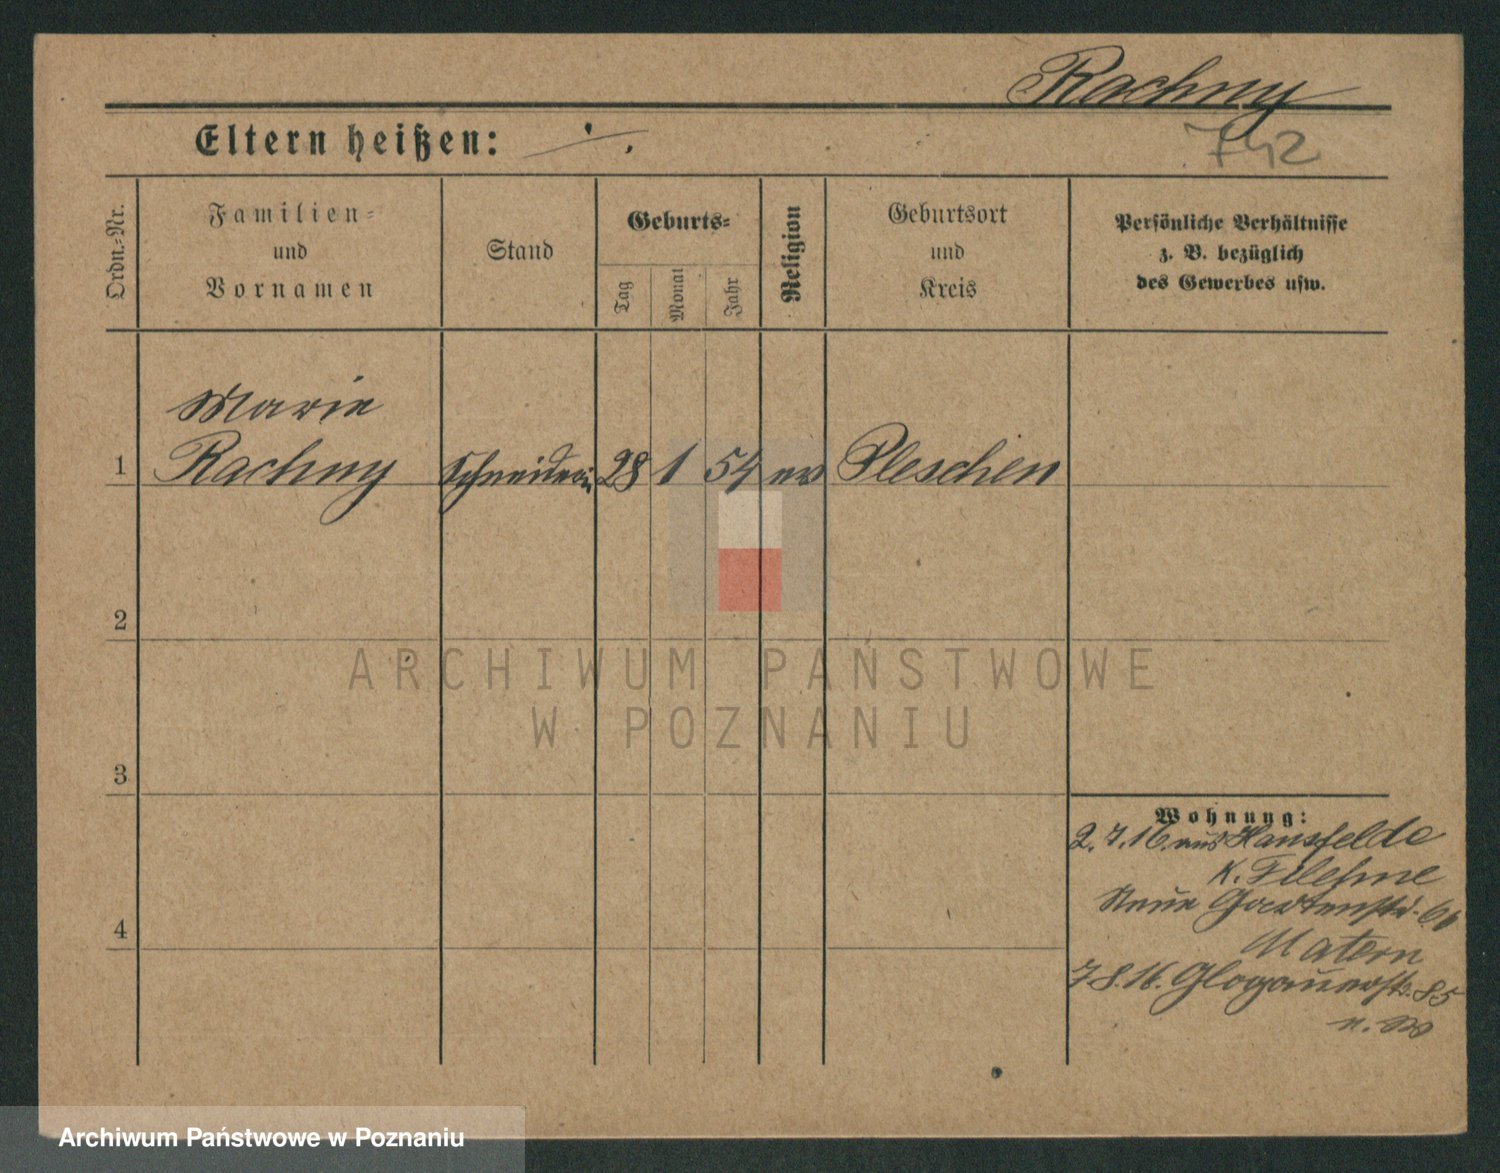 Rachny
742
Eltern heißen: ./.
Ordn.-Nr.
Familien-
und
Vornamen
Stand
Geburts-
Tag
Monat
Jahr
Religion
Geburtsort
und
Kreis
Persönliche Verhältnisse
z. B. bezüglich
des Gewerbes usw.
Marie
1 Rachny Schneiderin 28 1 54 ev Pleschen
2
3
4
Wohnung:
2.7.16. aus Hansfelde
K. Filehne
Neue Gartenstr.
Matern
7.8.16. Glogauerstr. 85
ARCHIWUM PAŃSTWOWE
W POZNANIU
Archiwum Państwowe w Poznaniu